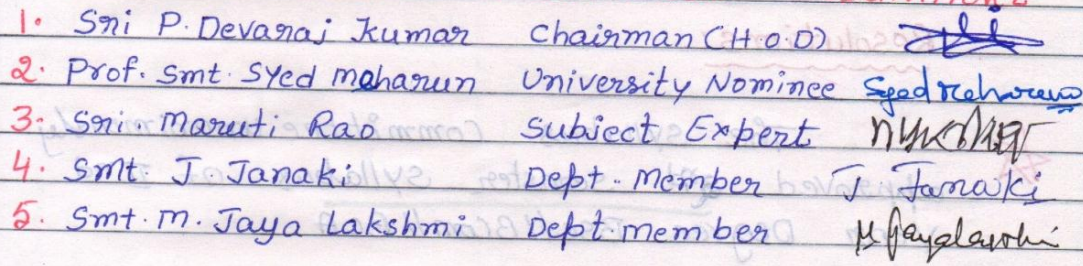 1. Sri P. Devaraj Kumar Chairman (H.O.D)
2. Prof. Smt. Syed Meharun University Nominee Syed Meharun
3. Sri. Maruti Rao Subject Expert
4. Smt. J. Janaki Dept. Member J Janaki
5. Smt. M. Jaya Lakshmi Dept. member M Jayalakshmi